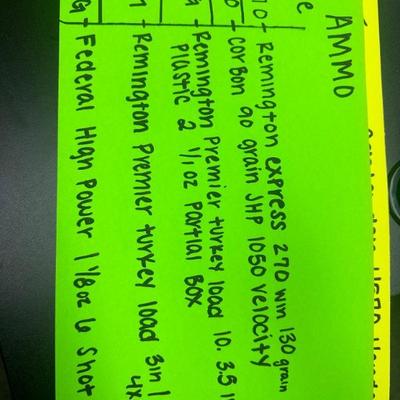 AMMO
e
10 - Remington express 270 win 130 grain
0 - corbon 90 grain JHP 1050 velocity
Remington Premier turkey load 10. 3.5
Plastic 2 1/1 oz Partial Box
Remington Premier turkey load 3in
4x
G - Federal High Power 1 1/8 oz 6 Shot